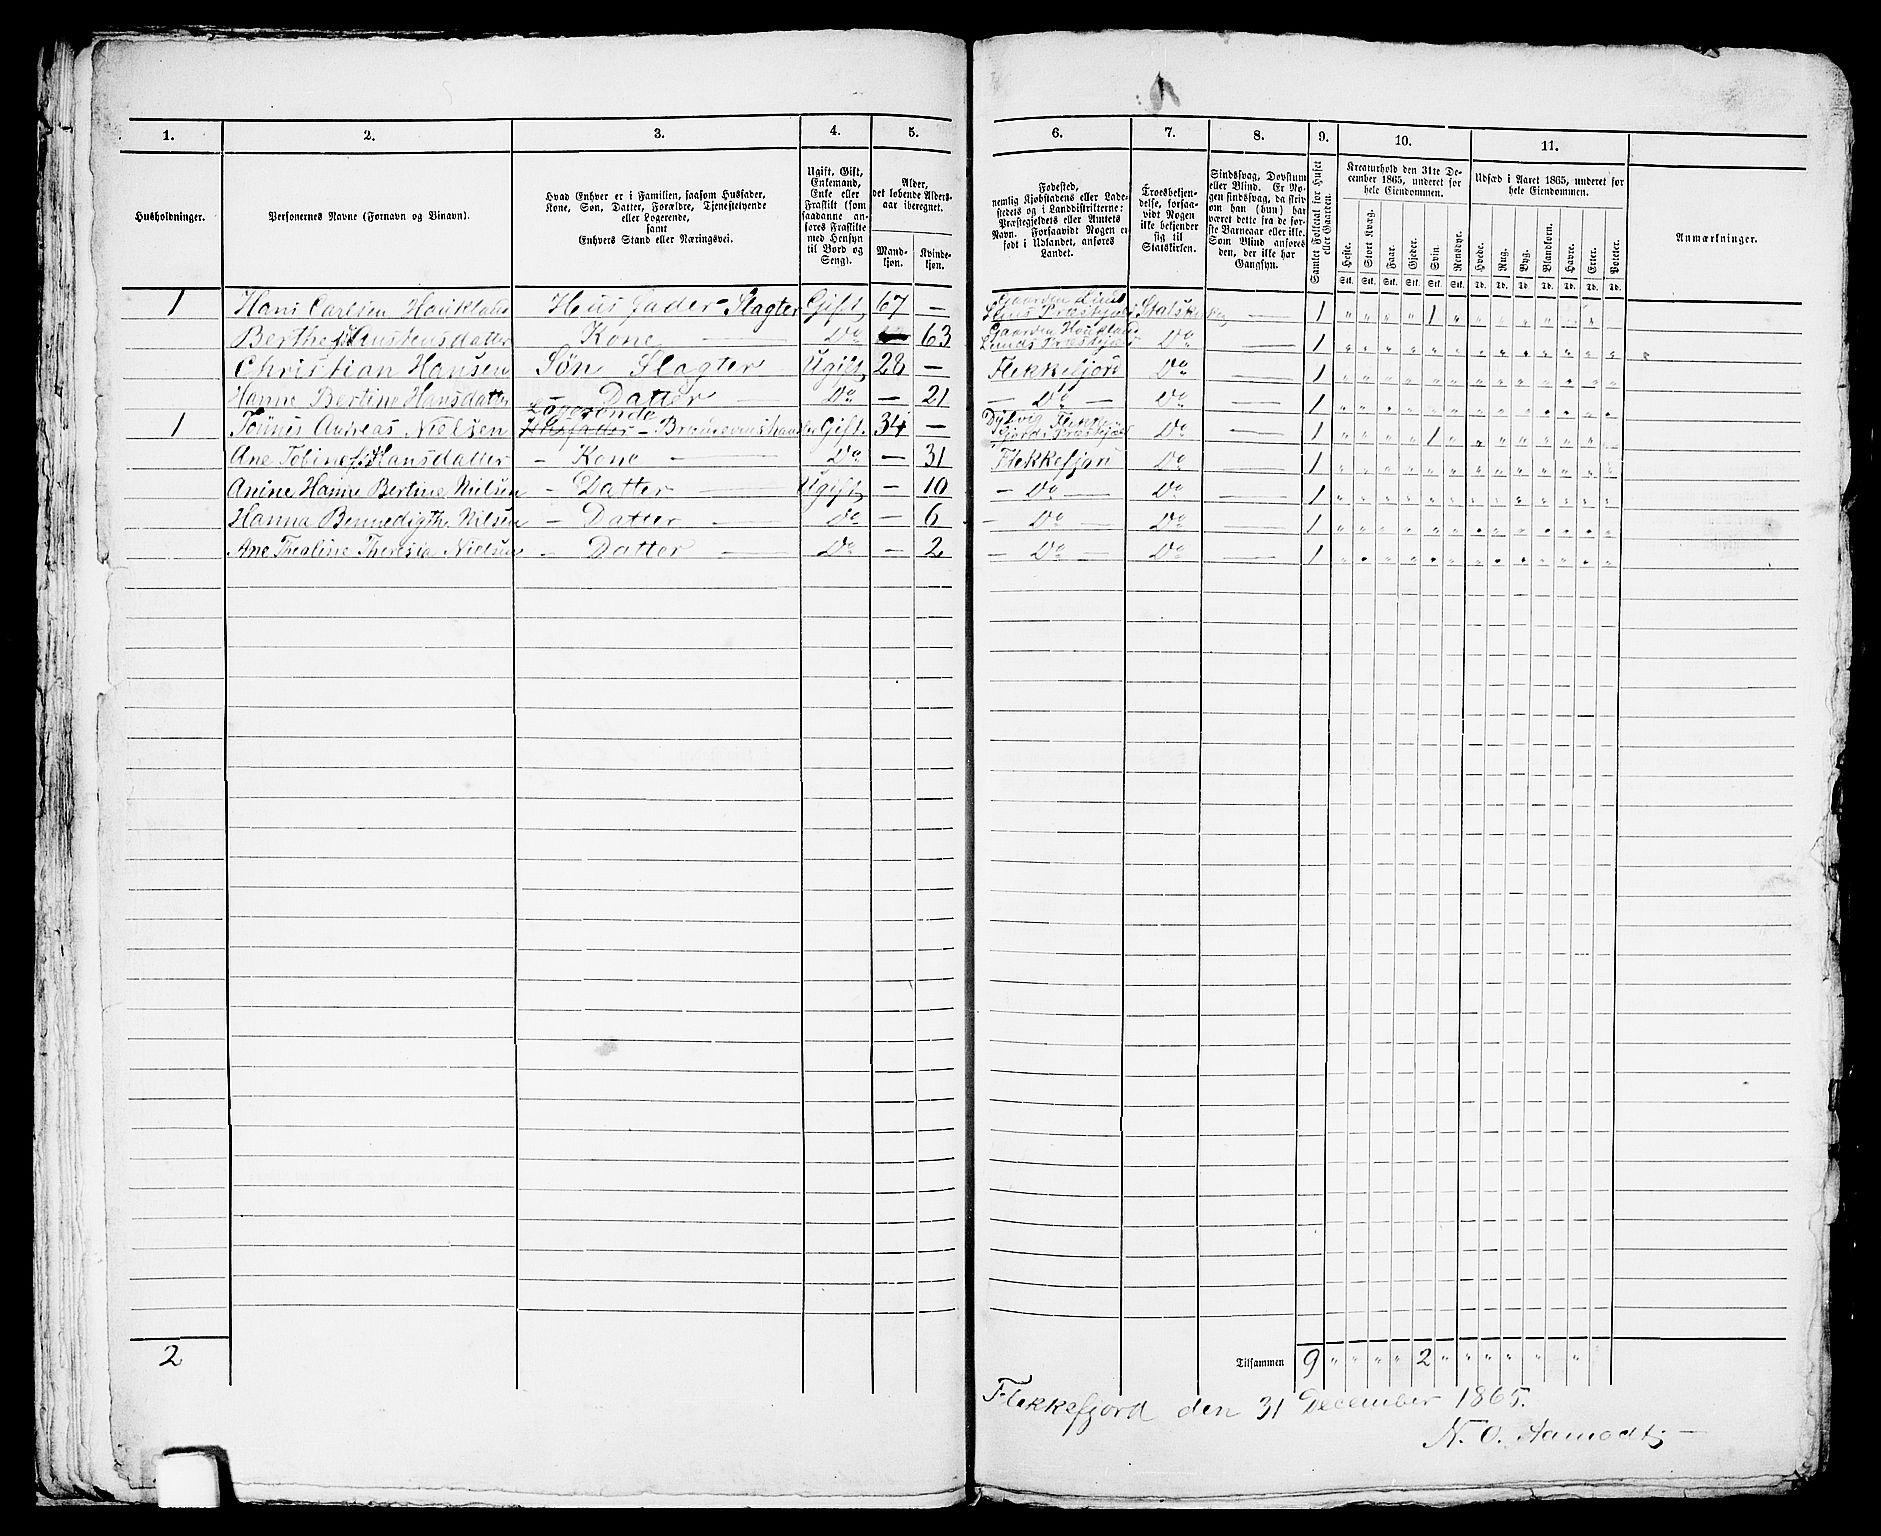 1. 2. 3. 4. 5. 6. 7. 8. 9. 10. 11.
Husholdninger.
Personernes Navne (Fornavn og Binavn).
Hvad Enhver er i Familien, saasom Husfader,
Kone, Søn, Datter, Forældre, Tjenestetyende
eller Logerende,
samt
Enhvers Stand eller Næringsvei.
Ugift, Gift,
Enkemand,
Enke eller
Fraskilt (som
saadanne an-
føres Fraskilte
med Hensyn
til Bord og
Seng).
Alder,
det løbende Alders-
aar iberegnet.
Mand-
kjøn.
Kvinde-
kjøn.
Fødested,
nemlig Kjøbstadens eller Lade-
stedets og i Landdistrikterne:
Præstegjeldets eller Amtets
Navn. Forsaavidt Nogen er
født i Udlandet, anføres
Landet.
Troesbekjen-
delse, forsaa-
vidt Nogen
ikke bekjender
sig til
Statskirken.
Sindssvag, Døvstum
eller Blind. Er No-
gen sindssvag, da skriv
om han (hun) har
været dette fra de før-
ste Barneaar eller ikke.
Som Blind anføres
den, der ikke har
Gangsyn.
Samlet Folketal for Huset
eller Gaarden.
Kreaturhold den 31te De-
cember 1865, underet for
hele Eiendommen.
Heste. Stort Kvæg. Faar. Gjeder. Svin. Rensdyr.
Stk. Stk. Stk. Stk. Stk. Stk.
Udsæd i Aaret 1865, underet for
hele Eiendommen.
Hvede. Rug. Byg. Blandkorn. Havre. Erter. Poteter.
Td. Td. Td. Td. Td. Td. Td.
Anmærkninger.
1 Hans Carlsen Houkland Huus fader - Slagter Gift 67 — Gaarden Lund Statskirken — 1 " " " " 1 "
Kone Do 63 Gaarden Houkland Lunds Præstgjæld Do — 1
Christian Hansen Søn Slagter Ugift 28 — Flekkefjord Do — 1
Hanne Bertine Hansdatter — Datter — Do — 21 — Do — Do — 1
Logerende
1 Tönnes Andreas Nielsen Gift 34 — Do — 1 " " " " 1 "
Ane Hansdatter - Kone — Do — 31 Flekkefjord Do — 1
Anine Hanne Bertine Nielsen - Datter — Ugift — 10 — Do — Do — 1
Hanna Bennedigthe Nilsen - Datter — Do — 6 — Do — Do — 1
Ane Thealine Theresia Nielsen - Datter — Do — 2 — Do — Do — 1
2 Tilsammen 9 " " " " 2 " " " " " "
Flekkefjord den 31 December 1865.
N. O. Aamodt